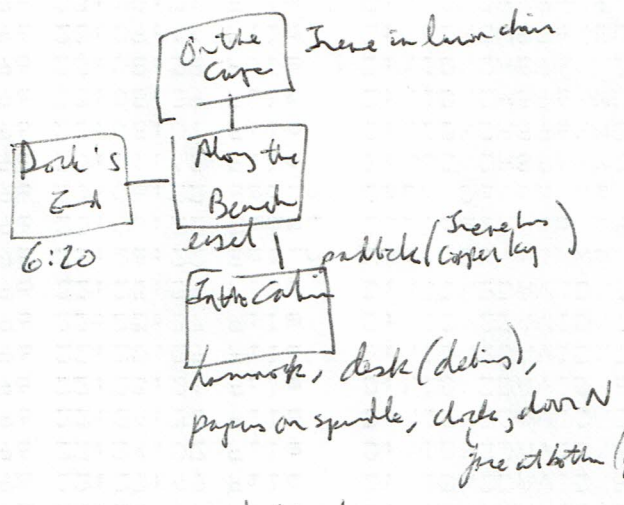 On the Irene in lawn chair
Cape
Dock's Along the
End Beach
6:20 easel
padlock (Irene has
copper key)
In the Cabin
hammock, desk (debris),
papers on spindle, clock, door N
at bottom (